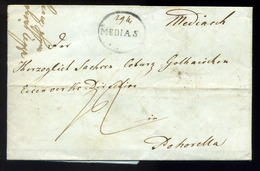 Mediasch
MEDIAS
Der
Herzoglich Sachsen Coburg Gothaischen
Eisenwerks Direktion
in
Pohorella